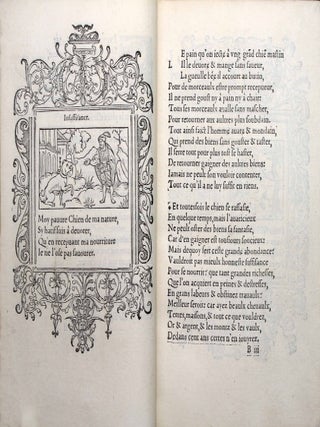 Insuffisance.
Moy pauure Chien de ma nature,
Sy hatif suis à deuorer,
Qu en receuant ma nourriture
Ie ne l'ose pas sauourer.
E pain qu'on iecta à vng grād chiē mastin
L Il le deuore & mange sans saueur,
La gueulle bée il accourt au butin,
Pour de morceaulx estre prompt recepueur,
Il ne prend goust ny à pain ny à chair:
Tous ses morceaulx aualle sans mascher,
Pour retourner aux aultres plus soubdain.
Tout ainsi faict l'homme auare & mondain,
Qui prend des biens sans gouster & taster,
Il serre tout pour plus tost se haster,
De retourner gaigner des aultres biens:
Iamais ne peult son vouloir contenter,
Tout ce qu'il a ne luy suffit en riens.
Et toutesfois le chien se rassasie,
En quelque temps, mais l'auaricieux
Ne peult oster des biens sa fantasie,
Car d'en gaigner est tousiours soucieux:
Mais dequoy sert ceste grande abondance?
Vauldroit pas mieulx honneste suffisance
Pour se nourrir: que tant grandes richesses,
Que l'on acquiert en peines & destresses,
En grans labeurs & obstinez trauaulx:
Meilleur seroit car ayez beaulx cheuaulx,
Terres, maisons, & tout ce que vouldrez,
Or & argent, & les montz & les vaulx,
Dedans cent ans certes n'en iouyrez.
B iii